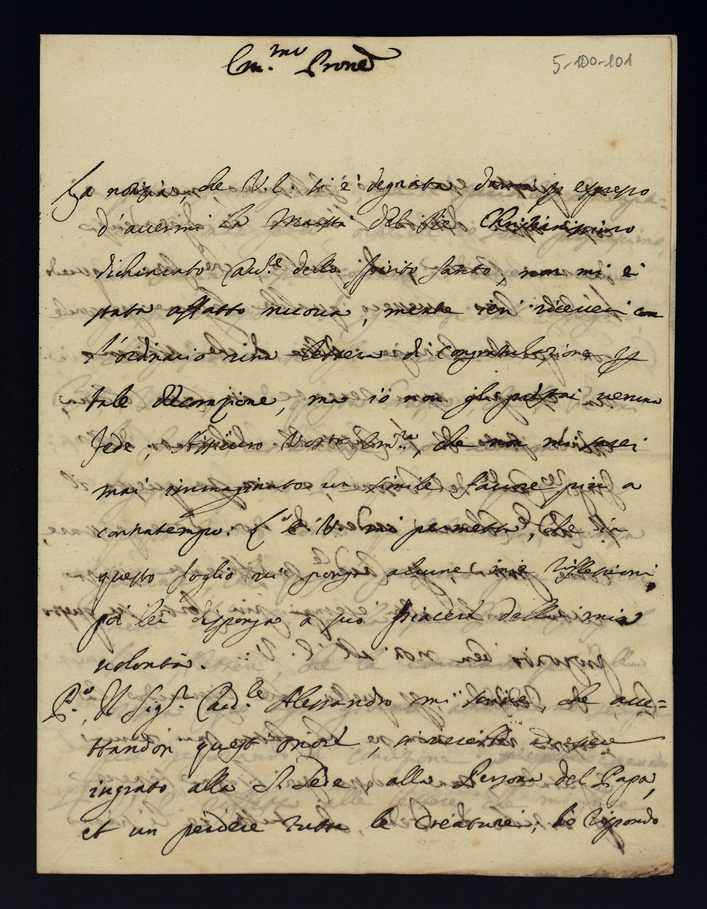 Em.mo Prone
5-100-101
La notizia, che V.E. si è degnata darmi p espresso
d'avermi la Maestà del Rè Christianissimo
dichiarato Cav.e dello Spirito Santo, non mi è
stata affatto nuova, mentre ieri ricevei con
l'ordinario una lettera di congratulazione p
tale decorazione, ma io non gli prestai veruna
fede, Assicuro Vostra Em.za, che non mi sarei
mai immaginato un simile favore più a
contratempo. L'E.V. mi permetta, che in
questo foglio mi ponga alcune mie riflessioni,
poi lei disponga a suo piacere della mia
volontà.
P.o, Il Sig.r Card.le Alessandro mi scrive, che acce=
ttandosi questo onore, è essere
ingrato alla S. Sede alla Persona del Papa,
et un perdere tutte le Creature; Io rispondo